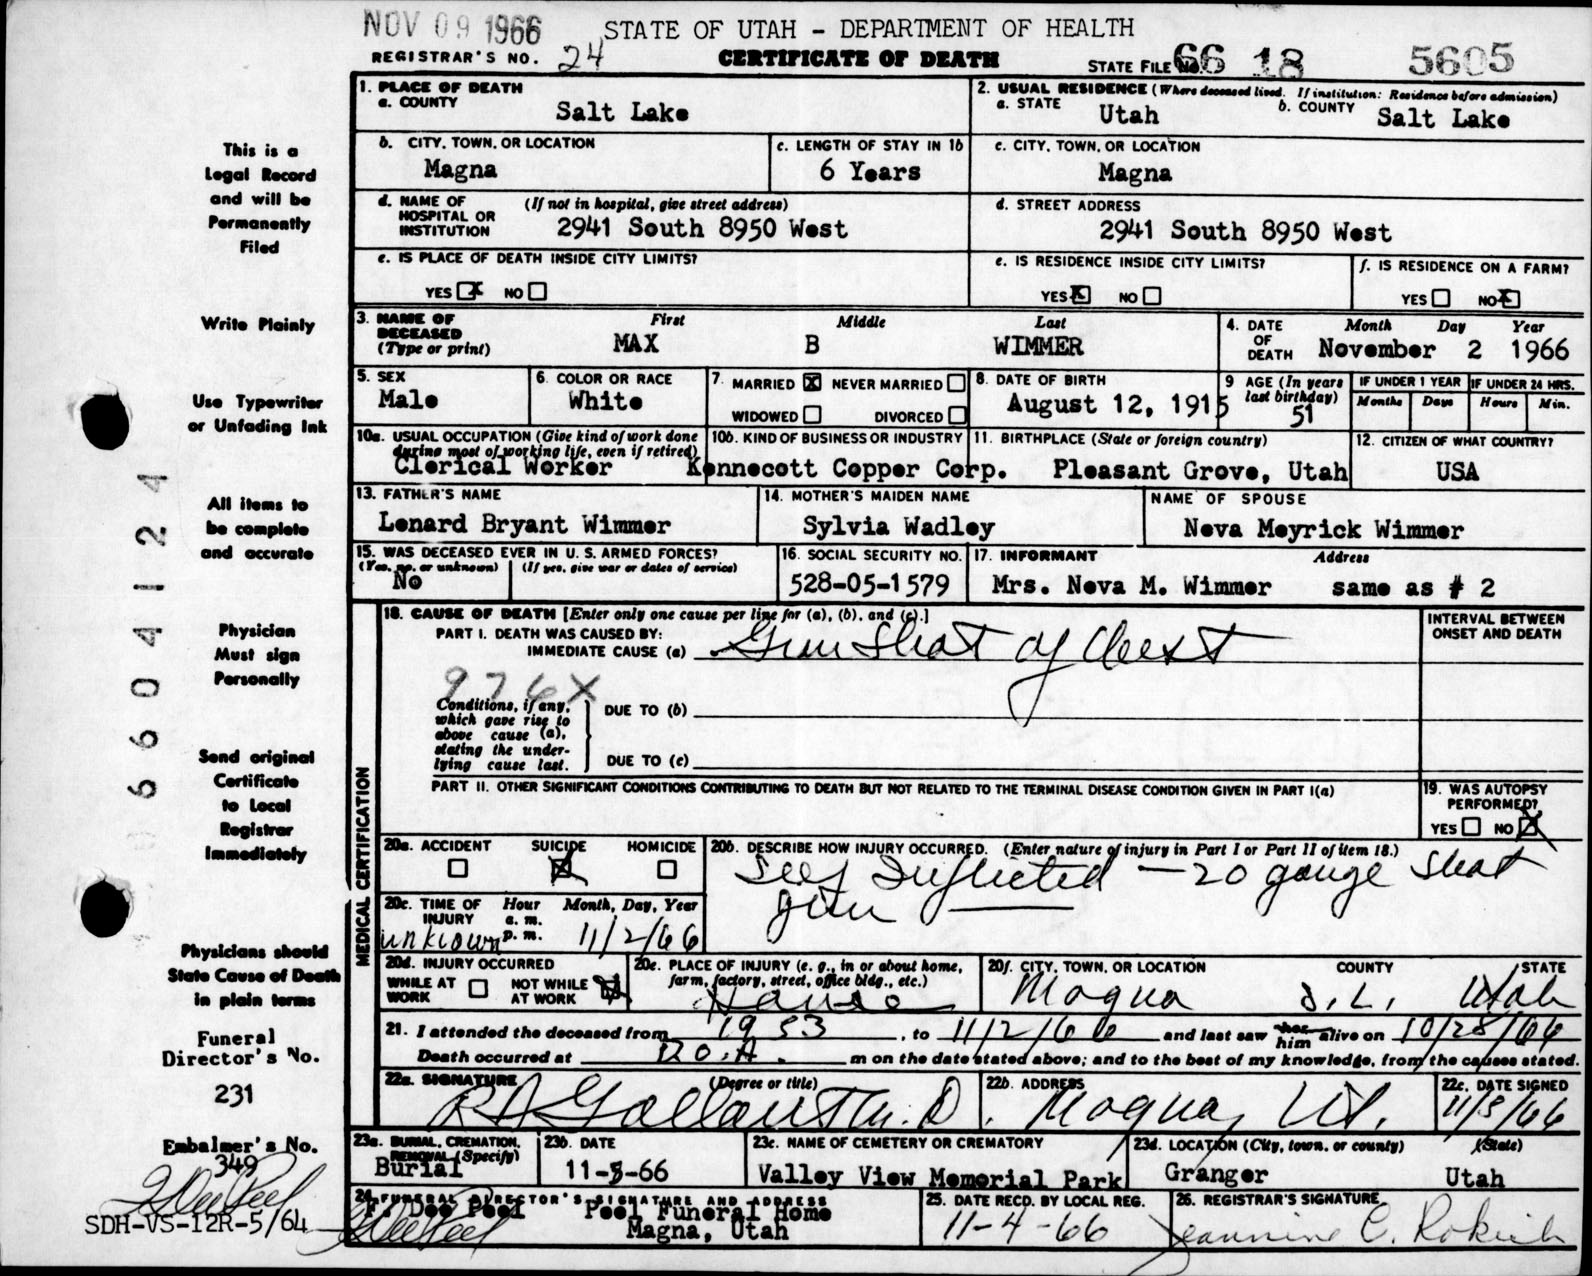 NOV 09 1966 STATE OF UTAH - DEPARTMENT OF HEALTH
REGISTRAR'S NO. 24 CERTIFICATE OF DEATH STATE FILE NO. 66 18 5605
This is a
Legal Record
and will be
Permanently
Filed
Write Plainly
Use Typewriter
or Unfading Ink
All items to
be complete
and accurate
Physician
Must sign
Personally
Send original
Certificate
to Local
Registrar
Immediately
Physicians should
State Cause of Death
in plain terms
Funeral
Director's No.
231
Embalmer's No.
349
SDH-VS-12R-5/64
6604124
1. PLACE OF DEATH
a. COUNTY
Salt Lake
2. USUAL RESIDENCE (Where deceased lived. If institution: Residence before admission)
a. STATE Utah b. COUNTY Salt Lake
b. CITY, TOWN, OR LOCATION
Magna
c. LENGTH OF STAY IN 1b
6 Years
c. CITY, TOWN, OR LOCATION
Magna
d. NAME OF HOSPITAL OR INSTITUTION (If not in hospital, give street address)
2941 South 8950 West
d. STREET ADDRESS
2941 South 8950 West
e. IS PLACE OF DEATH INSIDE CITY LIMITS?
YES X NO
e. IS RESIDENCE INSIDE CITY LIMITS?
YES X NO
f. IS RESIDENCE ON A FARM?
YES NO X
3. NAME OF DECEASED (Type or print) First Middle Last
MAX B WIMMER
4. DATE OF DEATH Month Day Year
November 2 1966
5. SEX
Male
6. COLOR OR RACE
White
7. MARRIED X NEVER MARRIED
WIDOWED DIVORCED
8. DATE OF BIRTH
August 12, 1915
9 AGE (In years last birthday)
51
IF UNDER 1 YEAR IF UNDER 24 HRS.
Months Days Hours Min.
10a. USUAL OCCUPATION (Give kind of work done during most of working life, even if retired)
Clerical Worker
10b. KIND OF BUSINESS OR INDUSTRY
Kennecott Copper Corp.
11. BIRTHPLACE (State or foreign country)
Pleasant Grove, Utah
12. CITIZEN OF WHAT COUNTRY?
USA
13. FATHER'S NAME
Lenard Bryant Wimmer
14. MOTHER'S MAIDEN NAME
Sylvia Wadley
NAME OF SPOUSE
Neva Meyrick Wimmer
15. WAS DECEASED EVER IN U. S. ARMED FORCES?
(Yes, no, or unknown) (If yes, give war or dates of service)
No
16. SOCIAL SECURITY NO.
528-05-1579
17. INFORMANT Address
Mrs. Neva M. Wimmer same as # 2
MEDICAL CERTIFICATION
18. CAUSE OF DEATH [Enter only one cause per line for (a), (b), and (c).]
PART I. DEATH WAS CAUSED BY:
IMMEDIATE CAUSE (a) Gun Shot of Chest
INTERVAL BETWEEN ONSET AND DEATH
976X
Conditions, if any, which gave rise to above cause (a), stating the underlying cause last.
DUE TO (b)
DUE TO (c)
PART II. OTHER SIGNIFICANT CONDITIONS CONTRIBUTING TO DEATH BUT NOT RELATED TO THE TERMINAL DISEASE CONDITION GIVEN IN PART I(a)
19. WAS AUTOPSY PERFORMED?
YES NO X
20a. ACCIDENT SUICIDE HOMICIDE
X
20b. DESCRIBE HOW INJURY OCCURRED. (Enter nature of injury in Part I or Part II of item 18.)
Self Inflicted — 20 gauge Shot
gun
20c. TIME OF INJURY Hour a. m. p. m. Month, Day, Year
unknown 11/2/66
20d. INJURY OCCURRED
WHILE AT WORK NOT WHILE AT WORK X
20e. PLACE OF INJURY (e. g., in or about home, farm, factory, street, office bldg., etc.)
House
20f. CITY, TOWN, OR LOCATION COUNTY STATE
Magna S.L. Utah
21. I attended the deceased from 1953, to 11/2/66 and last saw her him alive on 10/28/66
Death occurred at D.O.A. m on the date stated above; and to the best of my knowledge, from the causes stated.
22a. SIGNATURE (Degree or title)
R A Gallant M.D.
22b. ADDRESS
Magna, Ut.
22c. DATE SIGNED
11/3/66
23a. BURIAL, CREMATION, REMOVAL (Specify)
Burial
23b. DATE
11-5-66
23c. NAME OF CEMETERY OR CREMATORY
Valley View Memorial Park
23d. LOCATION (City, town, or county) (State)
Granger Utah
24. FUNERAL DIRECTOR'S SIGNATURE AND ADDRESS
F. Dee Peel Peel Funeral Home
Magna, Utah
25. DATE RECD. BY LOCAL REG.
11-4-66
26. REGISTRAR'S SIGNATURE
Jeannine C. Rokich